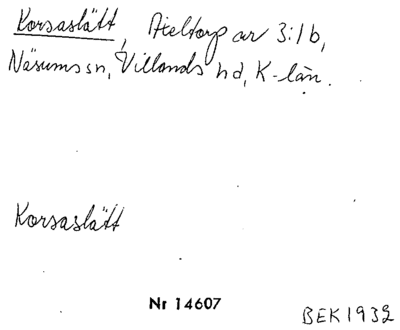 Korsaslätt, Axeltorp av 3:1 b,
Näsums sn, Villands hd, K-län.
Korsaslätt
Nr 14607
BEK 1932